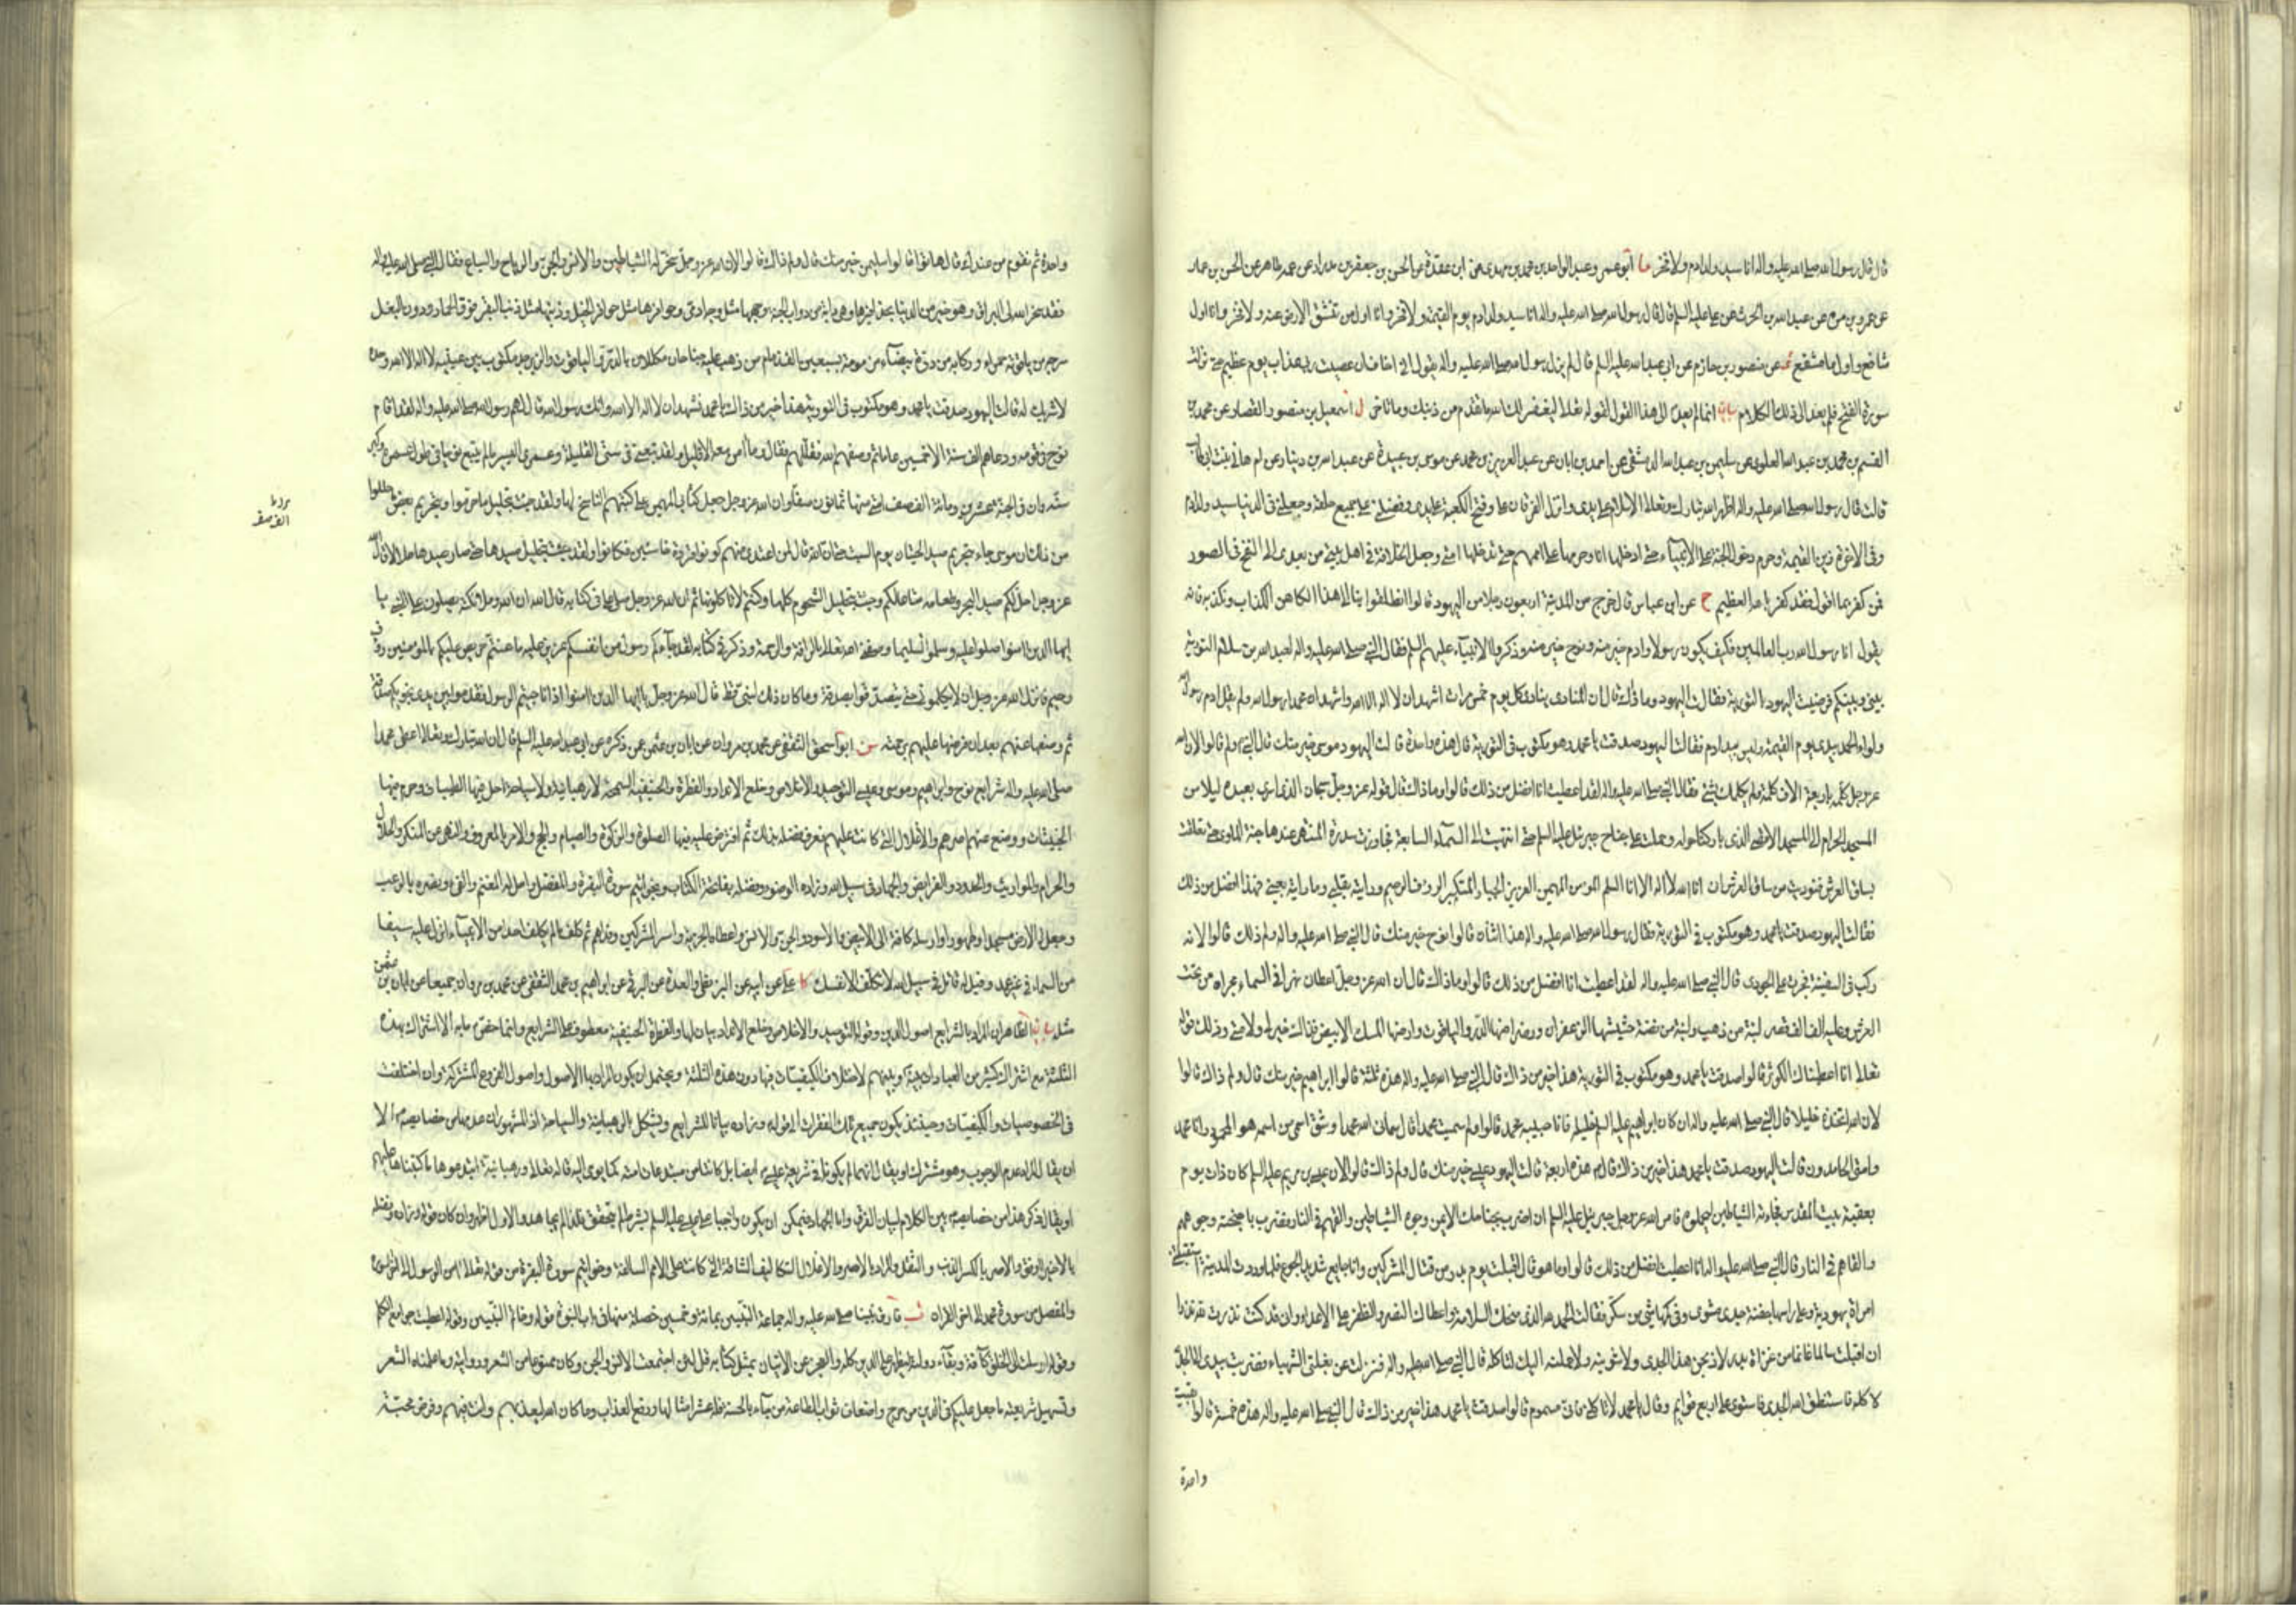 قال قال رسول الله صلى الله عليه واله انا سيد ولد ادم ولا فخر ما ابو عمر وعبد الواحد بن محمد بن مهدى عن ابن عقدة عن الحسن بن جعفر بن مدرار عن عمه طاهر عن الحسن بن عمار
عن عمرو بن مرة عن عبد الله بن الحرث عن على عليه السلم قال قال رسول الله صلى الله عليه واله انا سيد ولد ادم يوم القيمة ولا فخر وانا اول من تنشق الارض عنه ولا فخر وانا اول
شافع واول مشفع عن منصور بن حازم عن ابى عبد الله عليه السلم قال لم يزل رسول الله صلى الله عليه واله يقول انى اخاف ان عصيت ربى عذاب يوم عظيم حتى نزلت
سورة الفتح فلم يعد الى ذلك الكلام بيان انما لم يعد الى هذا القول لقوله تعلى ليغفر لك الله ما تقدم من ذنبك وما تاخر ل اسمعيل بن منصور القصار عن محمد بن
القسم بن محمد بن عبد الله العلوى عن سليمن بن عبد الله الدمشقى عن احمد بن ابان عن عبد العزيز بن محمد عن موسى بن عبيدة عن عبد الله بن دينار عن ام هانى بنت ابى طالب
قالت قال رسول الله صلى الله عليه واله اظهر الله تبارك وتعلى الاسلام على يدى وانزل الفرقان على وفتح الكعبة على يدى وفضلنى على جميع خلقه وجعلنى فى الدنيا سيد ولد ادم
وفى الاخرة زين القيمة وحرم دخول الجنة على الانبياء حتى ادخلها انا وحرمها على اممهم حتى تدخلها امتى وجعل الخلافة فى اهل بيتى من بعدى الى النفخ فى الصور
فمن كفر بما اقول فقد كفر بالله العظيم ج عن ابن عباس قال خرج من المدينة اربعون رجلا من اليهود قالوا انطلقوا بنا الى هذا الكاهن الكذاب ونكذبه فانه
يقول انا رسول الله رب العالمين فكيف يكون رسولا وادم خير منه ونوح خير منه وذكروا الانبياء عليهم السلم فقال النبى صلى الله عليه واله لعبد الله بن سلام التورية
بينى وبينكم فرضيت اليهود بالتورية فقالت اليهود وما ذاك قال ان المنادى ينادى كل يوم خمس مرات اشهد ان لا اله الا الله واشهد ان محمدا رسول الله ولم يقل ادم رسول الله
ولواء الحمد بيدى يوم القيمة وليس بيد ادم فقالت اليهود صدقت يا محمد وهو مكتوب فى التورية قال هذه واحدة قالت اليهود موسى خير منك قال النبى ولم قالوا لان الله
عز وجل كلمه باربعة الاف كلمة ولم يكلمك بشئ فقال النبى صلى الله عليه واله لقد اعطيت انا افضل من ذلك قالوا وما ذاك قال قوله عز وجل سبحان الذى اسرى بعبده ليلا من
المسجد الحرام الى المسجد الاقصى الذى باركنا حوله وحملت على جناح جبرئيل عليه السلم حتى انتهيت الى السماء السابعة فجاوزت سدرة المنتهى عندها جنة الماوى حتى تعلقت
بساق العرش فنوديت من ساق العرش ان انا الله لا اله الا انا السلم المومن المهيمن العزيز الجبار المتكبر الروف الرحيم ورايته بقلبى وما رايته بعينى فهذا افضل من ذلك
فقالت اليهود صدقت يا محمد وهو مكتوب فى التورية فقال رسول الله صلى الله عليه واله هذا اثنان قالوا نوح خير منك قال النبى صلى الله عليه واله ولم ذلك قالوا لانه
ركب فى السفينة فجرت على الجودى قال النبى صلى الله عليه واله لقد اعطيت انا افضل من ذلك قالوا وما ذاك قال ان الله عز وجل اعطانى نهرا فى السماء مجراه من تحت
العرش وعليه الف الف قصر لبنة من ذهب ولبنة من فضة حشيشها الزعفران ورضراضها الدر والياقوت وارضها المسك الابيض فذاك خير لى ولامتى وذلك قوله
تعلى انا اعطيناك الكوثر قالوا صدقت يا محمد وهو مكتوب فى التورية هذا خير من ذاك قال النبى صلى الله عليه واله هذه ثلثة قالوا ابراهيم خير منك قال ولم ذاك قالوا
لان الله اتخذه خليلا قال النبى صلى الله عليه واله ان كان ابراهيم عليه السلم خليله فانا حبيبه محمد قالوا ولم سميت محمدا قال سمانى الله محمدا وشق اسمى من اسمه هو المحمود وانا محمد
وامتى الحامدون قالت اليهود صدقت يا محمد هذا خير من ذاك قال هذه اربعة قالت اليهود عيسى خير منك قال ولم ذاك قالوا لان عيسى بن مريم عليه السلم كان ذات يوم
بعقبة بيت المقدس فجاءته الشياطين ليحملوه فامر الله عز وجل جبرئيل عليه السلم ان اضرب بجناحك الايمن وجوه الشياطين والقهم فى النار فضرب باجنحته وجوههم
والقاهم فى النار قال النبى صلى الله عليه واله انا اعطيت افضل من ذلك قالوا وما هو قال اقبلت يوم بدر من قتال المشركين وانا جايع شديد الجوع فلما وردت المدينة استقبلتنى
امراة يهودية وعلى راسها جفنة جدى مشوى وفى كمها شئ من سكر فقالت الحمد لله الذى منحك السلامة واعطاك النصر والظفر على الاعداء وان قد كنت نذرت لله نذرا
ان اقبلت سالما غانما من غزاة بدر لاذبحن هذا الجدى ولاشوينه ولاحملنه اليك لتاكله قال النبى صلى الله عليه واله فنزلت عن بغلتى الشهباء فضربت بيدى الى الجدى
لاكله فاستنطق الله الجدى فاستوى على اربع قوايم وقال يا محمد لا تاكلنى فانى مسموم قالوا صدقت يا محمد هذا خير من ذاك قال النبى صلى الله عليه واله هذه خمسة قالوا بقيت
واحدة
واحدة ثم نقوم من عندك قال هاتوا قالوا سليمن خير منك قال ولم ذاك قالوا لان الله عز وجل سخر له الشياطين والانس والجن والرياح والسباع فقال النبى صلى الله عليه واله
فقد سخر الله لى البراق وهو خير من الدنيا بحذافيرها وهى دابة من دواب الجنة وجهها مثل وجه ادمى وحوافرها مثل حوافر الخيل وذنبها مثل ذنب البقر فوق الحمار ودون البغل
سرجه من ياقوتة حمراء وركابه من درة بيضاء مزمومة بسبعين الف زمام من ذهب عليه جناحان مكللان بالدر والياقوت والزبرجد مكتوب بين عينيه لا اله الا الله وحده
لا شريك له قالت اليهود صدقت يا محمد وهو مكتوب فى التورية هذا خير من ذاك يا محمد نشهد ان لا اله الا الله وانك رسول الله قال لهم رسول الله صلى الله عليه واله لقد اقام
نوح فى قومه ودعاهم الف سنة الا خمسين عاما ثم وصفهم الله فقللهم فقال وما امن معه الا قليل ولقد تبعنى فى سنى القليلة وعمرى اليسير ما لم يتبع نوحا فى طول عمره وكبر
سنه وان فى الجنة عشرين وماية الف صف امتى منها ثمانون صفا وان الله عز وجل جعل كتابى المهيمن على كتبهم الناسخ لها ولقد جئت بتحليل ما حرموا وبتحريم بعض ما حللوا
من ذلك ان موسى جاء بتحريم صيد الحيتان يوم السبت حتى ان الله قال لمن اعتدى منهم كونوا قردة خاسئين فكانوا ولقد جئت بتحليل صيدها حتى صار صيدها حلالا قال الله
عز وجل احل لكم صيد البحر وطعامه متاعا لكم وجئت بتحليل الشحوم كلها وكنتم لا تاكلونها ثم ان الله عز وجل صلى على فى كتابه قال الله ان الله وملائكته يصلون على النبى يا
ايها الذين امنوا صلوا عليه وسلموا تسليما وصفنى الله تعلى بالرافة والرحمة وذكر فى كتابه لقد جاءكم رسول من انفسكم عزيز عليه ما عنتم حريص عليكم بالمومنين رؤف
رحيم وانزل الله عز وجل ان لا يكلمونى حتى يتصدقوا بصدقة وما كان ذلك لنبى قط قال الله عز وجل يا ايها الذين امنوا اذا ناجيتم الرسول فقدموا بين يدى نجويكم صدقة
ثم وضعها عنهم بعد ان فرضها عليهم برحمته سن ابو اسحق الثقفى عن محمد بن مروان عن ابان بن عثمن عمن ذكره عن ابى عبد الله عليه السلم قال ان الله تبارك وتعالى اعطى محمدا
صلى الله عليه واله شرايع نوح وابراهيم وموسى وعيسى التوحيد والاخلاص وخلع الانداد والفطرة والحنيفية السمحة لا رهبانية ولا سياحة احل فيها الطيبات وحرم فيها
الخبيثات ووضع عنهم اصرهم والاغلال التى كانت عليهم فعرف فضله بذلك ثم افترض عليه فيها الصلوة والزكوة والصيام والحج والامر بالمعروف والنهى عن المنكر والحلال
والحرام والمواريث والحدود والفرايض والجهاد فى سبيل الله وزاده الوضوء وفضله بفاتحة الكتاب وبخواتيم سورة البقرة والمفصل واحل له المغنم والفئ ونصره بالرعب
وجعل له الارض مسجدا وطهورا وارسله كافة الى الابيض والاسود والجن والانس واعطاه الجزية واسر المشركين وفداهم ثم كلف ما لم يكلف احد من الانبياء انزل عليه سيفا
من السماء فى غير غمد وقيل له قاتل فى سبيل الله لا تكلف الا نفسك كا على عن ابيه عن البزنطى والعدة عن البرقى عن ابراهيم بن محمد الثقفى عن محمد بن مروان جميعا عن ابان بن عثمن
مثله بيان الظاهر ان المراد بالشرايع اصول الدين وقوله التوحيد والاخلاص وخلع الانداد بيان لها والفطرة الحنيفية معطوف على الشرايع وانما خص ما به الاشتراك بهذه
الثلثة مع اشتراك كثير من العبادات بينه وبينهم لاختلاف الكيفيات فيها دون هذه الثلثة ويحتمل ان يكون المراد بها الاصول واصول الفروع المشتركة وان اختلفت
فى الخصوصيات والكيفيات وحينئذ يكون جميع تلك الفقرات الى قوله وزاده بيانا للشرايع ويشكل بالرهبانية والسياحة اذ المشهور ان عدمهما من خصايصه الا
ان يقال المراد عدم الوجوب وهو مشترك او يقال انهما لم يكونا فى شريعة عيسى ايضا بل كانتا من مبتدعات امته كما يومى اليه قوله تعلى ورهبانية ابتدعوها ما كتبناها عليهم
او يقال لم يذكر هذا من خصايصه بين الكلام لبيان الفرق واما الجهاد فيمكن ان يكون واجبا على عيسى عليه السلم بشرط لم يتحقق فلذا لم يجاهد والاول اظهر وان كان قوله وزاده وفضله
بالاخير اوفق والاصر بالكسر الذنب والثقل والمراد بالاصر والاغلال التكاليف الشاقة التى كانت على الامم السالفة وخواتيم سورة البقرة من قوله تعلى امن الرسول الى اخر السورة
والمفصل من سورة محمد الى اخر القران قب فارق نبينا صلى الله عليه واله جماعة النبيين بماية وخمسين خصلة منها فى باب النبوة قوله وخاتم النبيين وقوله اعطيت جوامع الكلم
وقوله ارسلت الى الخلق كافة وبقاء دولته ليظهره على الدين كله والعجز عن الاتيان بمثل كتابه قل لئن اجتمعت الانس والجن وكان ممنوعا من الشعر وروايته وما علمناه الشعر
وتسهيل شريعته ما جعل عليكم فى الدين من حرج واضعاف ثواب الطاعة من جاء بالحسنة فله عشر امثالها ورفع العذاب وما كان الله ليعذبهم وانت فيهم وفرض محبته